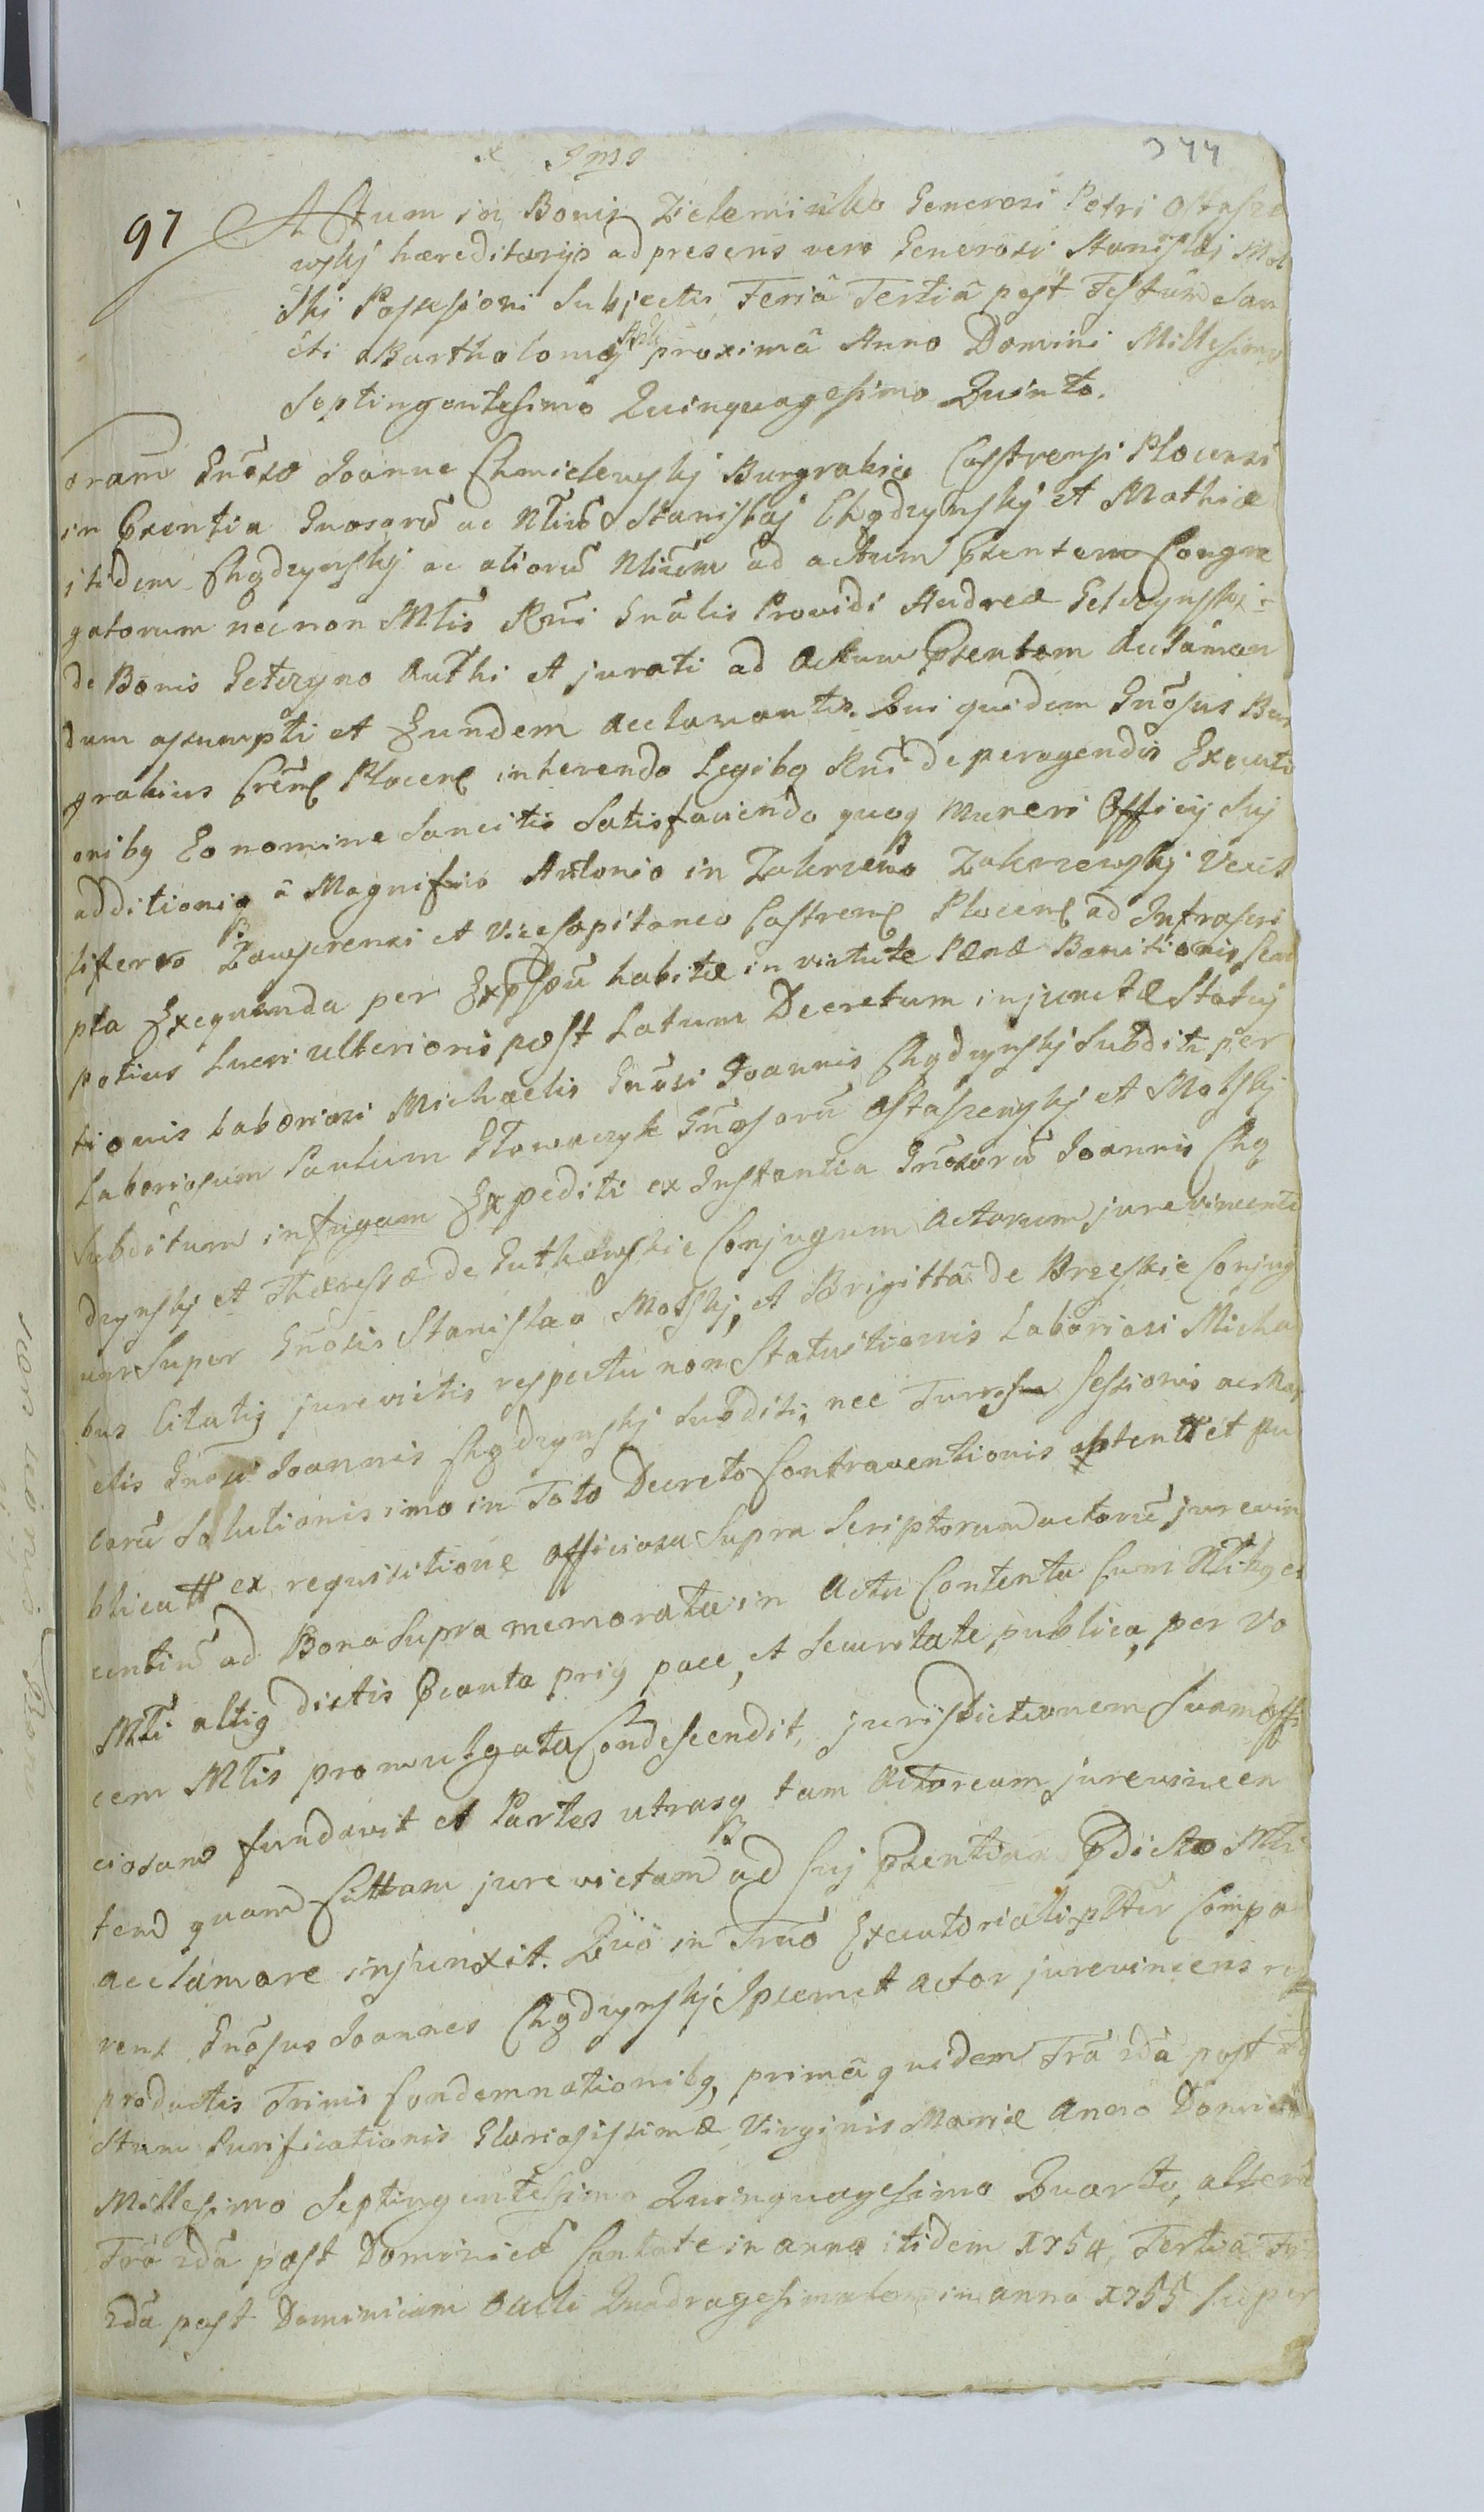 344
97 Actum in Bonis Zieleminko Generosi Petri Ostasze
wskj hæreditarijs ad presens vero Generosi Stanislaj Mol
ski Possessioni Subjectis, Feriâ Tertiâ post Festum San
cti Bartholomej Apli proximâ Anno Domini Millesimo
Septingentesimo Quinquagesimo Quinto.
oram Gnoso Joanne Chmielewskj Burgrabio Castrensi Plocensi
in Pxentia Gnosorū ac Nliū Stanislaj Chądzynskj et Mathiæ
itidem Chądzynskj ac aliorū Nliūm ad actum Pxentem Congre
gatorum nec non Mtlis Rni Gnalis Providi Andreæ
de Bonis Authi et jurati ad Actum Pxentem Acclaman
dum assumpti et Eundem acclamantis. Qui quidem Gnosus Bur
grabius Crens Plocens inherendo Legibq Rni de peragendis Executi
onibq Eo nomine Sancitis Satisfaciendo quoq Muneri Officij Suj
additioniq â Magnifico Antonio in Zakrzewo Zakrzewskj Vexil
lifero Zawscrensi et Vicesapitaneo Castrens Plocens ad Infrascri
pta Exequenda per Expssū habitæ in virtute Pænæ Banitionis seu
potius Lucri ulterioris post Latum Decretum injunctæ Statuj
tionis Laboriosi Michaelis Gnosi Joannis Chądzynskj Subditi per
Laboriosum Paulum Glowaczyk Gnosorū Ostaszewskj et Molskj
Subditum in fugam Expediti ex Instantia Gnosorū Joannis Chą
dzynskj et Theressæ de Gutkowskie Conjugum Actorum jurevincenti
um Super Gnosis Stanislao Molskj, et Brigittâ de Brzeskie Conjugi
bus Citatis jurevictis respectu non Statuitionis Laboriosi Micha
elis Gnosi Joannis Chądzynskj Subditi, nec Turris Sessionis
carū Solutionis imo in Toto Decreto Contraventionis obtentt et pu
blicatt ex requisitione officiosa Supra Scriptorum actorū jurevin
centiū ad Bona Supra memorata in Actu Contenta Cum Nlibq et
Mtli altiq dictis Pcauta priq pace, et Securitate publica, per Vo
cem Mtlis promulgata Condescendit, jurisdictionem Suam offi
ciosam fundavit et Partes utrasq tam Actoream jurevincen
tem quam Cittam jure victam ad Suj Pxentiam Pdicto Mtli
acclamare injunxit. Quo in Trno Executoriali pltter Compa
rens Gnosus Joannes Chądzynskj Ipsemet Actor jurevincens
productis Trinis Condemnationibq, primâ quidem Frâ 2dâ post Fe
stum Purificationis Gloriosissimæ Virginis Mariæ Anno Domini
Millesimo Septingentesimo Quinquagesimo Quarto, alterâ
Frâ 2dâ post Dominicā Cantate in anno itidem 1754, Tertia Frâ
2dâ post Dominicam Oculi Quadragesimalem in anno 1755 Super